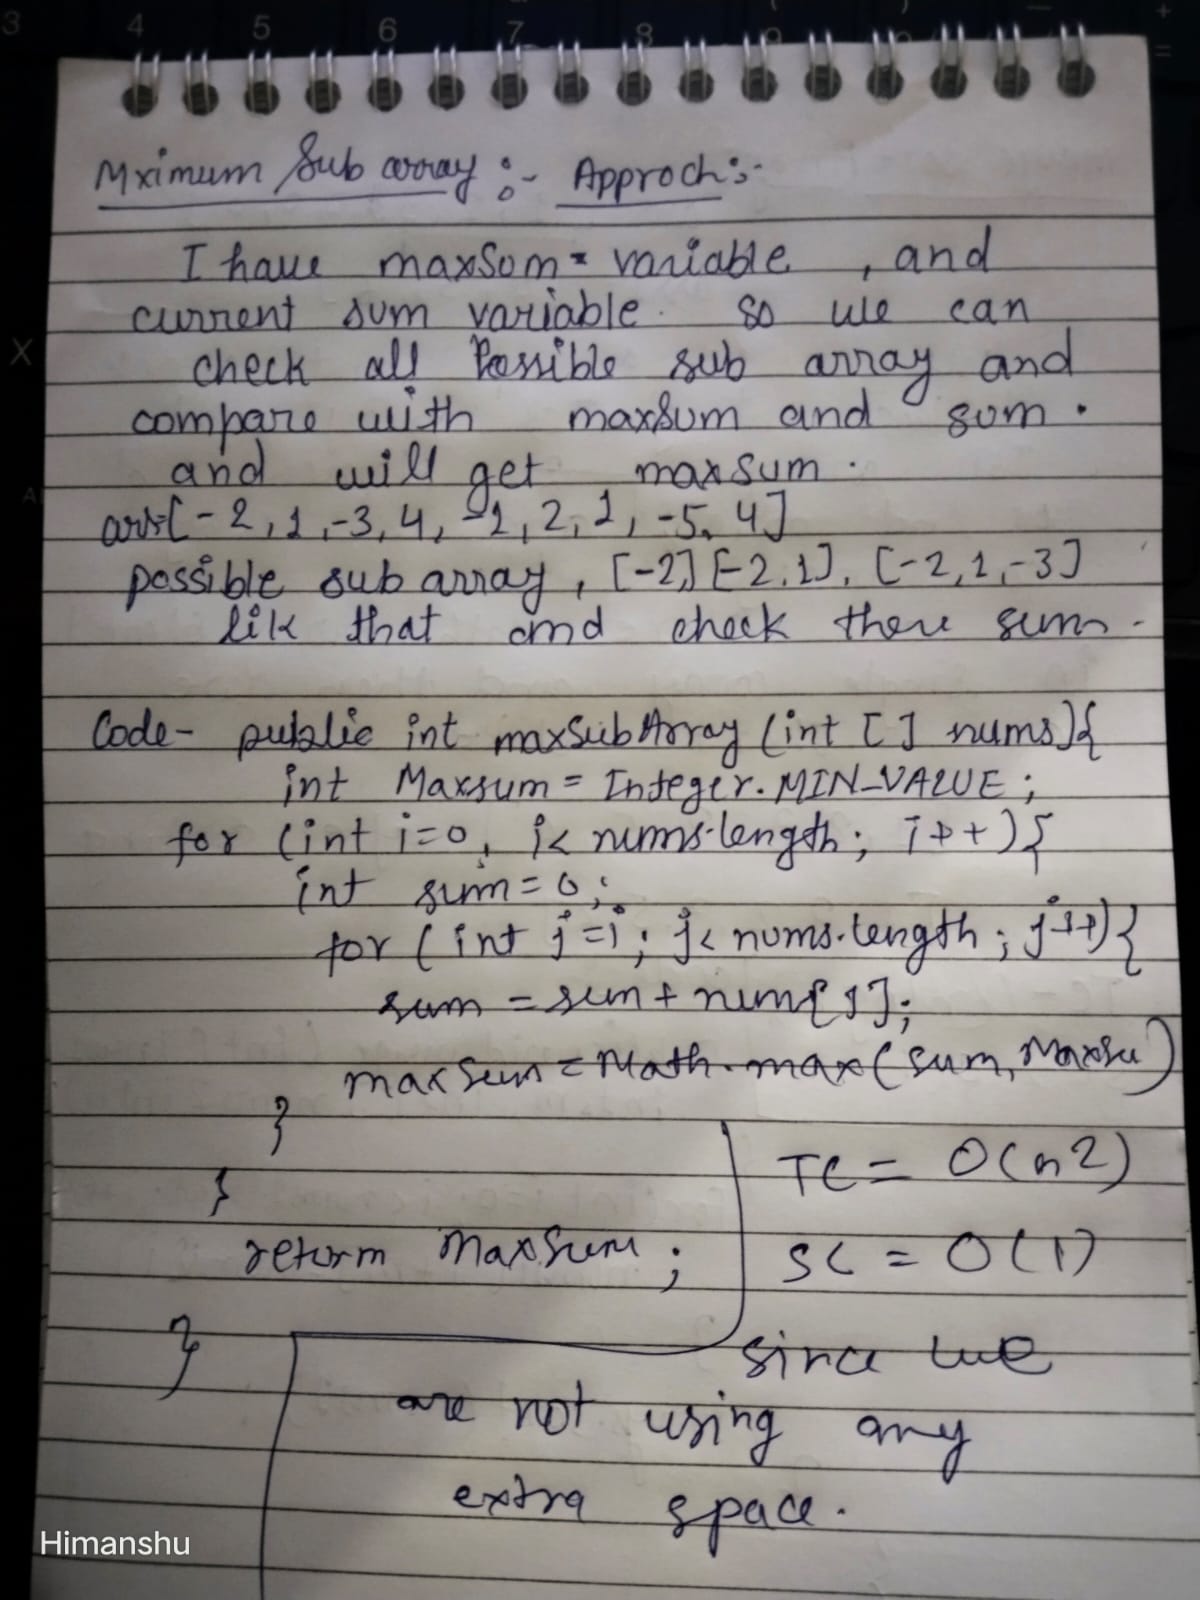 3 4 5 6 7 8 9
Mximum Sub array :- Approch :-
I have maxSum variable , and
current sum variable. so we can
check all Possible sub array and
compare with maxSum and sum .
and will get maxsum .
arr=[-2,1,-3,4,-1,2,1,-5,4]
possible sub array , [-2] [-2,1], [-2,1,-3]
lik that and check there sum .
Code- public int maxSubArray (int [] nums){
int Maxsum = Integer.MIN_VALUE ;
for (int i=0, i< nums.length ; i++){
int sum=0;
for (int j=i ; j< nums.length ; j++){
sum = sum + num[j];
maxSum = Math.max(sum, Maxsu)
}
}
TC = O(n2)
return MaxSum ;
SC = O(1)
}
since we
are not using any
extra space .
Himanshu